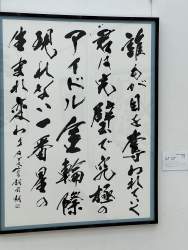 誰もが目を奪われていく
君は完璧で究極の
アイドル 金輪際
現れない 一番星の
生まれ変わり